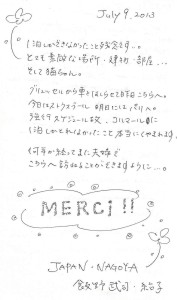 July 9. 2013
1泊しかできなかったこと残念です…。
とても素敵な場所・建物・部屋…
そして猫ちゃん。
から車を
今日はストラスブール 明日にはパリへ。
スケジュール故、コルマールに
1泊しかとれなかったこと本当にくやまれます。
何年か経ってまた夫婦で
こちらへ訪れることができますように…。
MERCi !!
JAPAN・NAGOYA
飯野 武司・